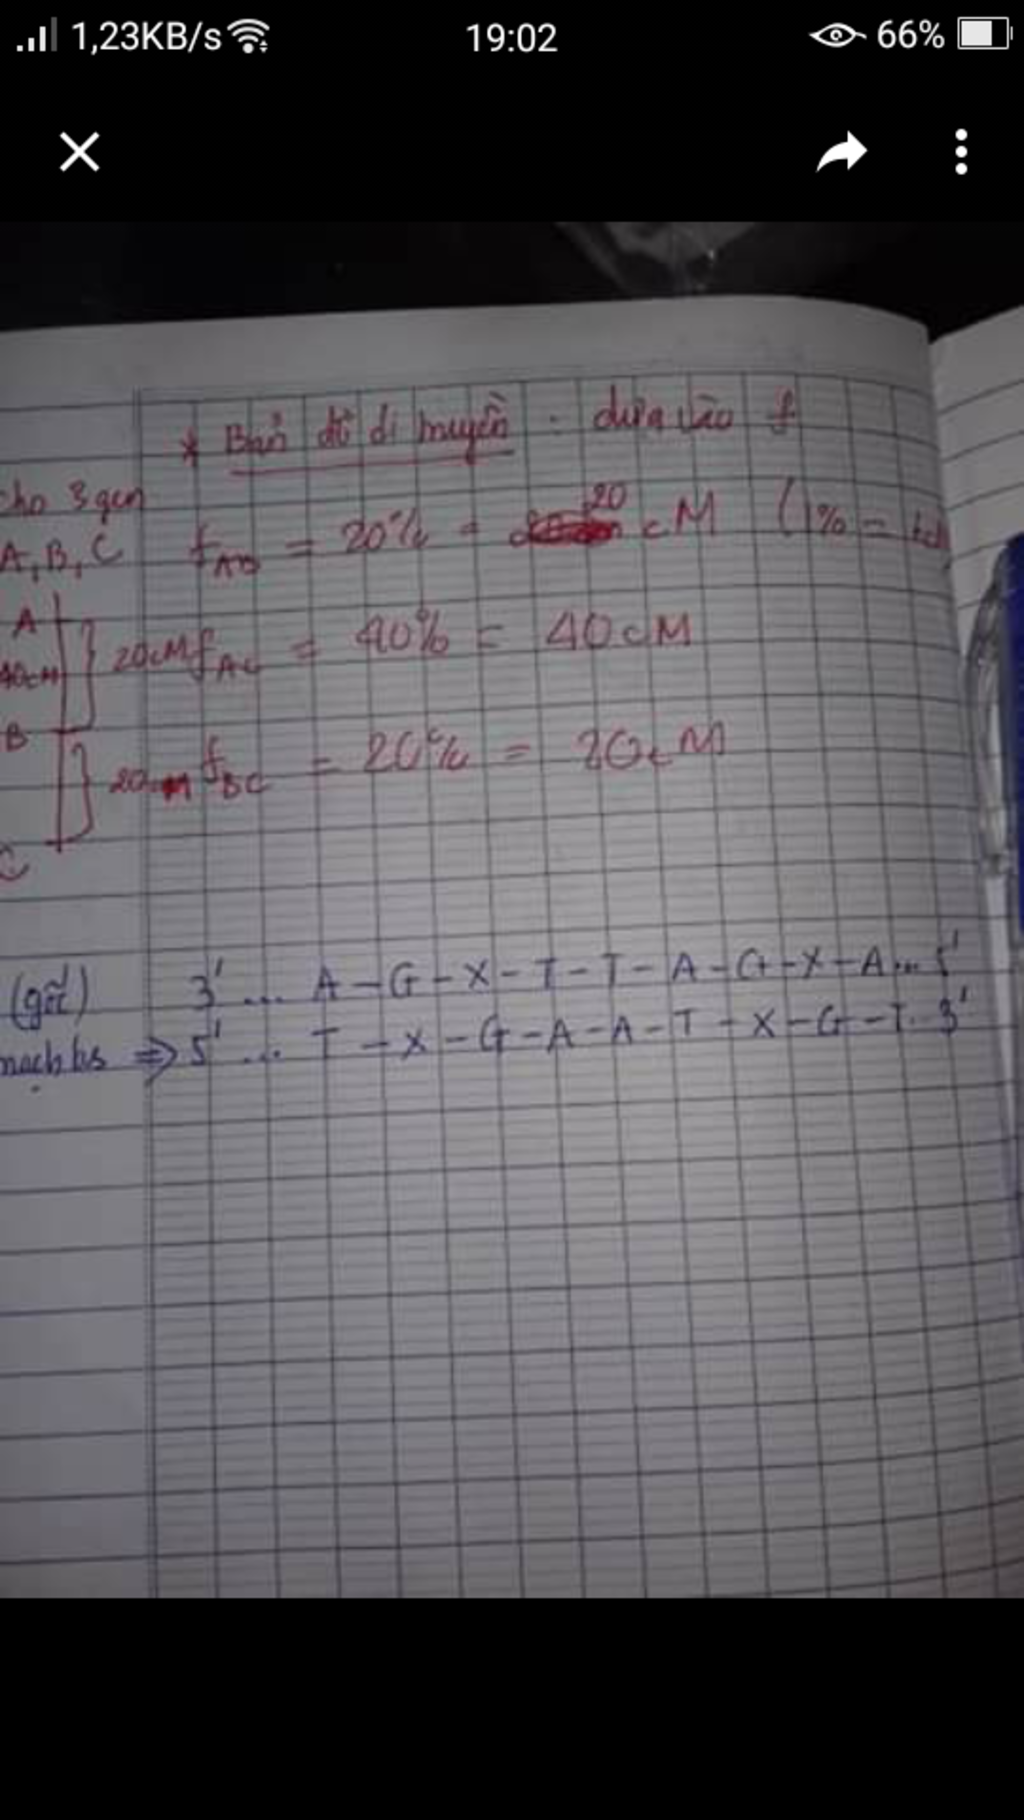 1,23KB/s 19:02 66%
* Bản đồ di truyền : dựa vào f
cho 3 gen
A, B, C
f_AB = 20% = 20 cM (1% = 
A
40cM
B
C
20cM f_AC = 40% = 40cM
20cM f_BC = 20% = 20cM
(gốc) 3' ... A-G-X-T-T-A-G-X-A... 5'
mạch bs => 5' ... T-X-G-A-A-T-X-G-T. 3'